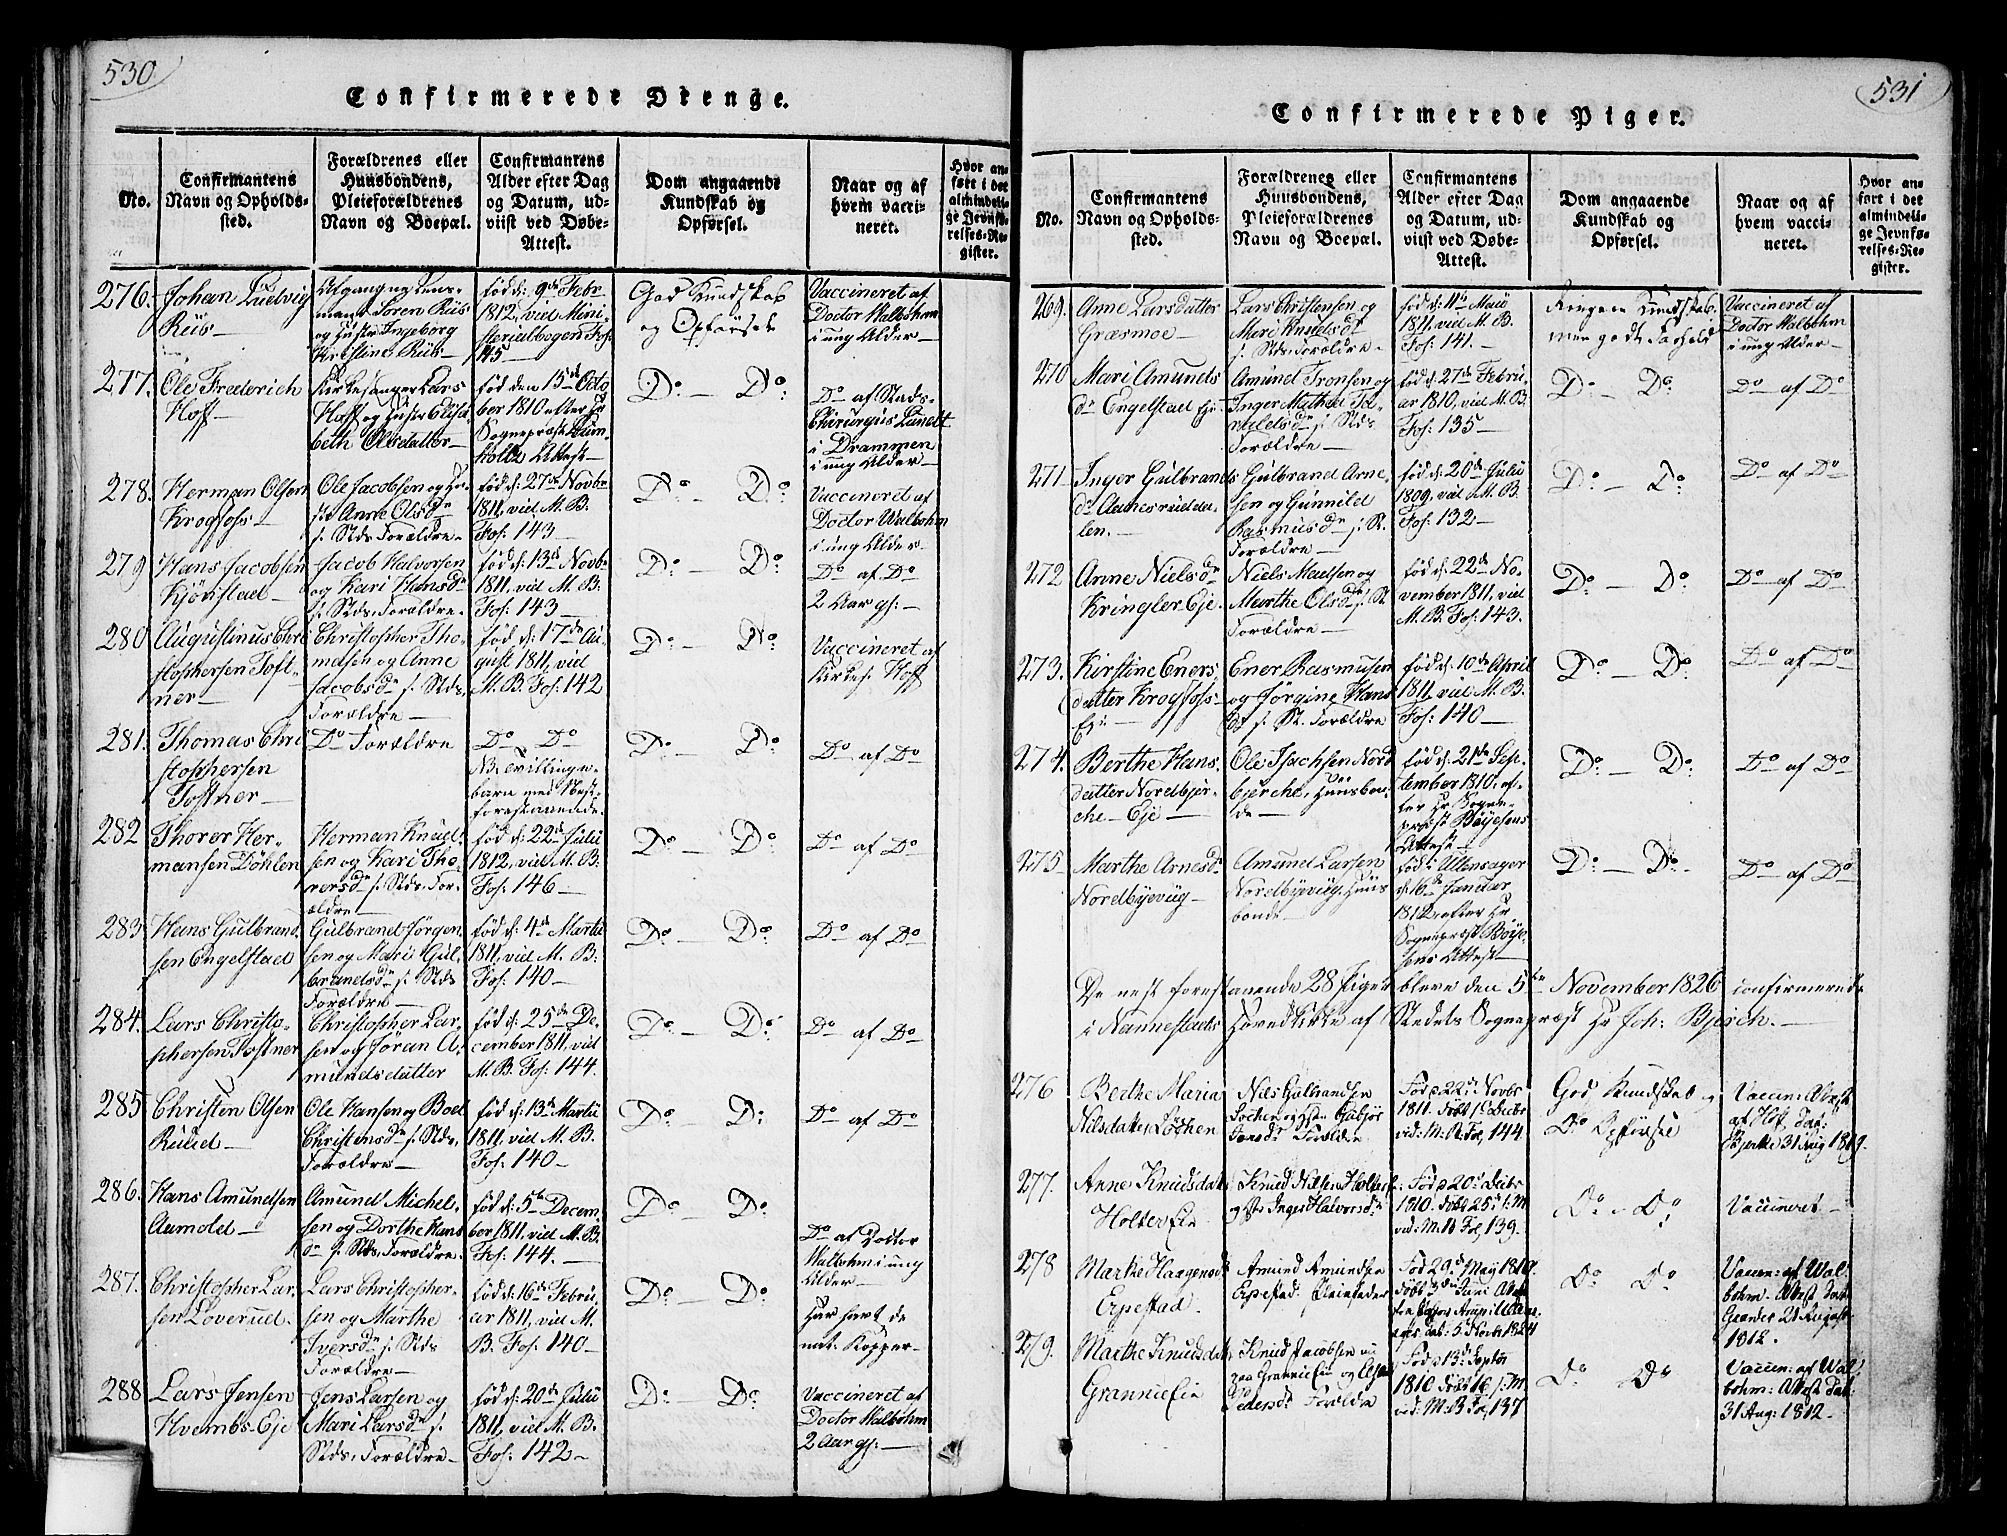 530
Confirmerede Drenge.
No.
Confirmantens
Navn og Opholds-
sted.
Forældrenes eller
Huusbondens,
Pleieforældrenes
Navn og Boepæl.
Confirmantens
Alder efter Dag
og Datum, ud-
viist ved Døbe-
Attest.
Dom angaaende
Kundskab og
Opførsel.
Naar og af
hvem vacci-
neret.
Hvor an-
ført i det
almindeli-
ge Jevnfø-
relses-Re-
gister.
276.
Johan Ludvig
Riis
Afgangne Lens-
mand Søren Riis
og Hustru Ingeborg
Kirstine Riis
fød d: 9de Febr.
1812, vid Mini-
sterialbogen Fol:
145
God Kundskab
og Opførsel
Vaccineret af
Doctor Walbohm
i ung Alder
277.
Ole Frederich
Hoff
Kirkesanger Lars
Hoff og Hustru Elisa-
beth Olsdatter
fød den 15de Octo
ber 1810 efter Hr
Sognepræst
Attest
Do Do
Do af Stads-
Chirurgus Lundt
i Drammen
i ung Alder
278.
Herman Olsen
Krogfoss
Ole Jacobsen og Hu-
stru Anne Olsdr
f. Stds. Forældre
fød d: 27de Novbr
1811, vid M. B.
Fol: 143
Do Do
Vaccineret af
Doctor Walbohm
i ung Alder
279
Hans Jacobsen
Kjønstad
Jacob Halvorsen
og Kari Hansdr
f. Stds. Forældre
fød d: 13de Novbr
1811, vid M. B.
Fol: 143
Do Do
Do af Do
2 Aar gl:
280
Augustinus Chri
stophersen Toft-
ner
Christopher Tho-
mesen og Anne
Jacobsdr f. Stds.
Forældre
fød d: 17de Au-
gust 1811, vid
M. B. Fol: 142
Do Do
Vaccineret af
Kirkes. Hoff
281.
Thomas Chri
stophersen
Toftner
Do Forældre
Do Do
NB. Tvillinge-
barn med næst-
forestaaende
Do Do
Do af Do
282
Thorer Her-
mansen Døhlen
Herman Knud-
sen og Kari Tho
rersdr f. Stds. For-
ældre
fød d: 22de Julii
1812, vid M. B.
Fol: 146
Do Do
Do af Do
283
Hans Gulbrand-
sen Engelstad
Gulbrand Jørgen-
sen og Mari Gul-
brandsdr f. Stds
Forældre
fød d: 4de Martii
1811, vid M. B.
Fol: 140
Do Do
Do af Do
284.
Lars Christo-
phersen Toftner
Christopher Lar-
sen og Joran A-
mundsdatter
fød d: 25de De-
cember 1811, vid
M. B. Fol: 144.
Do Do
Do af Do
285
Christen Olsen
Ruud
Ole Hansen og Boel
Christensdr f. Stds.
Forældre
fød d: 13de Martii
1811, vid M. B.
Fol: 140
Do Do
Do af Do
286.
Hans Amundsen
Aamold
Amund Michel-
sen og Dorthe Hans
dr f. Stds. Forældre.
fød d: 5te Decem-
ber 1811, vid M. B.
Fol: 144.
Do Do
Do af Doctor
Walbohm i ung
Alder
287.
Christopher Lar-
sen Løverud.
Lars Christopher-
sen og Marthe
Iversdr f. Stds
Forældre
fød d: 16de Febru-
ar 1811, vid M.
B. Fol: 140
Do Do
Har havt de
nat: Kopper
288
Lars Jensen
Hvembs-Eje
Jens Larsen og
Mari Larsdr f.
Stds. Forældre
fød d: 20de Julii
1811, vid M. B.
Fol: 142
Do Do
Vaccineret af
Doctor Walbohm
2 Aar gl:
531
Confirmerede Piger.
No.
Confirmantens
Navn og Opholds-
sted.
Forældrenes eller
Huusbondens,
Pleieforældrenes
Navn og Boepæl.
Confirmantens
Alder efter Dag
og Datum, ud-
viist ved Døbe-
Attest.
Dom angaaende
Kundskab og
Opførsel.
Naar og af
hvem vacci-
neret.
Hvor an-
ført i det
almindeli-
ge Jevnfø-
relses-Re-
gister.
269.
Anne Larsdatter
Græsmoe
Lars Christensen og
Mari Knudsdr
f. Stds. Forældre
fød d: 11te Maii
1811, vid M. B.
Fol: 141.
Ringere Kundskab,
men godt Forhold
Vaccineret af
Doctor Walbohm
i ung Alder
270
Mari Amunds
dr Engelstad Eje
Amund Tronsen og
Inger Mathea
f. Stds
Forældre
fød d: 27de Febru-
ar 1810, vid M. B.
Fol: 135
Do Do
Do af Do
271
Inger Gulbrands
dr Aamodsrudda-
len.
Gulbrand Arne-
sen og Gunnild
Rasmusdr f. St.
Forældre
fød d: 20de Julii
1809, vid M. B.
Fol: 132
Do Do
Do af Do
272
Anne Nielsdr
Kringler Eje.
Niels Madsen og
Marthe Olsdr f. St.
Forældre
fød d: 22de No-
vember 1811, vid
M. B. Fol: 143.
Do Do
Do af Do
273.
Kirstine Eners
datter Krogfoss-
Eje
Ener Rasmusen
og Jørgine Hans
dr f. St. Forældre
fød d: 10de April
1811, vid M. B.
Fol: 140
Do Do
Do af Do
274.
Berthe Hans-
datter Nordbjer-
che Eje
Ole Isachsen Nord
bjerche, Huusbon-
de
fød d: 21de Sep-
tember 1810, ef-
ter Hr Sogne-
præst Boyesens
Attest
Do Do
Do af Do
275
Marthe Arnesdr
Nordbyevug
Amund Larsen
Nordbyevug, Huus
bonde
fød i Ullensager
d: 16de Januar
1812, efter Hr
Sognepræst Boye-
sens Attest
Do Do
Do af Do
De nest forestaaende 28 Piger bleve den 5te November 1826 confirmerede
i Nannestads Hovedkirke af Stedets Sognepræst Hr Joh: Bjerch.
276
Berthe Maria
Nilsdatter Løchen
Nils Gulbrandsen
Løchen og Hustru
Forældre
Fød d 22de Novbr
1811. døbt 1ste Decbr
vid: M. B. Fol, 144
God Kundskab og
Do Opførsel
Vaccin: Attest
af Hof, dat:
Bjerke 31 Aug 1819.
277.
Anne Knudsdatter
Holter Eie
Knud Nilsen Holter
og Hu Inger Halvorsdr
Fød d 20de Decbr
1810. døbt 25de s: M
vid: M: B Fol, 139.
Do Do
Vaccineret
278
Marthe Haagensdr
Erpestad
Amund Amundsen
Erpestad. Pleiefader
Fød 29de May 1810.
døbt 3de Juni
dat: 5 Novbr 1824
Do Do
Vaccin: af Wal-
bohm. Attest dat
Grønder 21 August
1812.
279.
Marthe Knudsdatter
Grannie Eie
Knud Jacobsen
paa Grannie Eie og
Pedersdr Forældre
Fød d 13de Septbr
1810 døbt 16 s: M
vid: M: B Fol, 137
Do Do
Vaccin: af Wal-
bohm: Attest dat:
31 Aug: 1812.